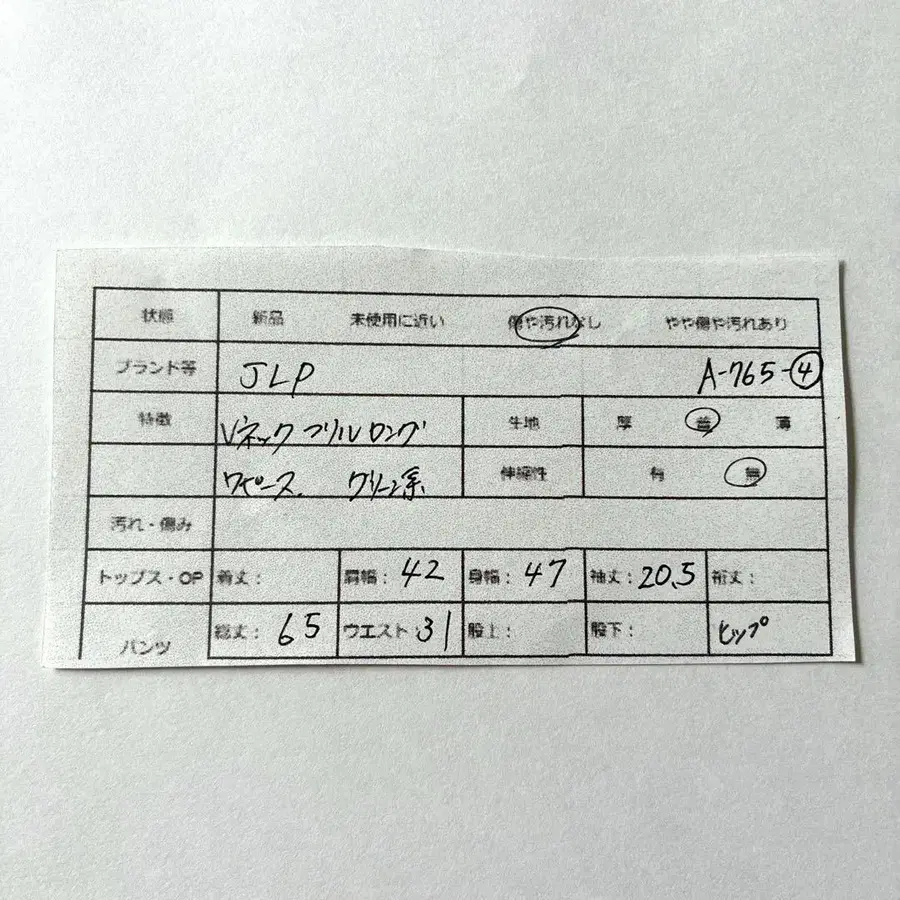 状態 新品 未使用に近い 傷や汚れなし やや傷や汚れあり
ブランド等 JLP A-765-④
特徴 Vネック フリル ロング 生地 厚 普 薄
ワンピース. グリーン系 伸縮性 有 無
汚れ・傷み
トップス・OP 着丈: 肩幅: 42 身幅: 47 袖丈: 20.5 裄丈:
パンツ 総丈: 65 ウエスト: 31 股上: 股下: ヒップ